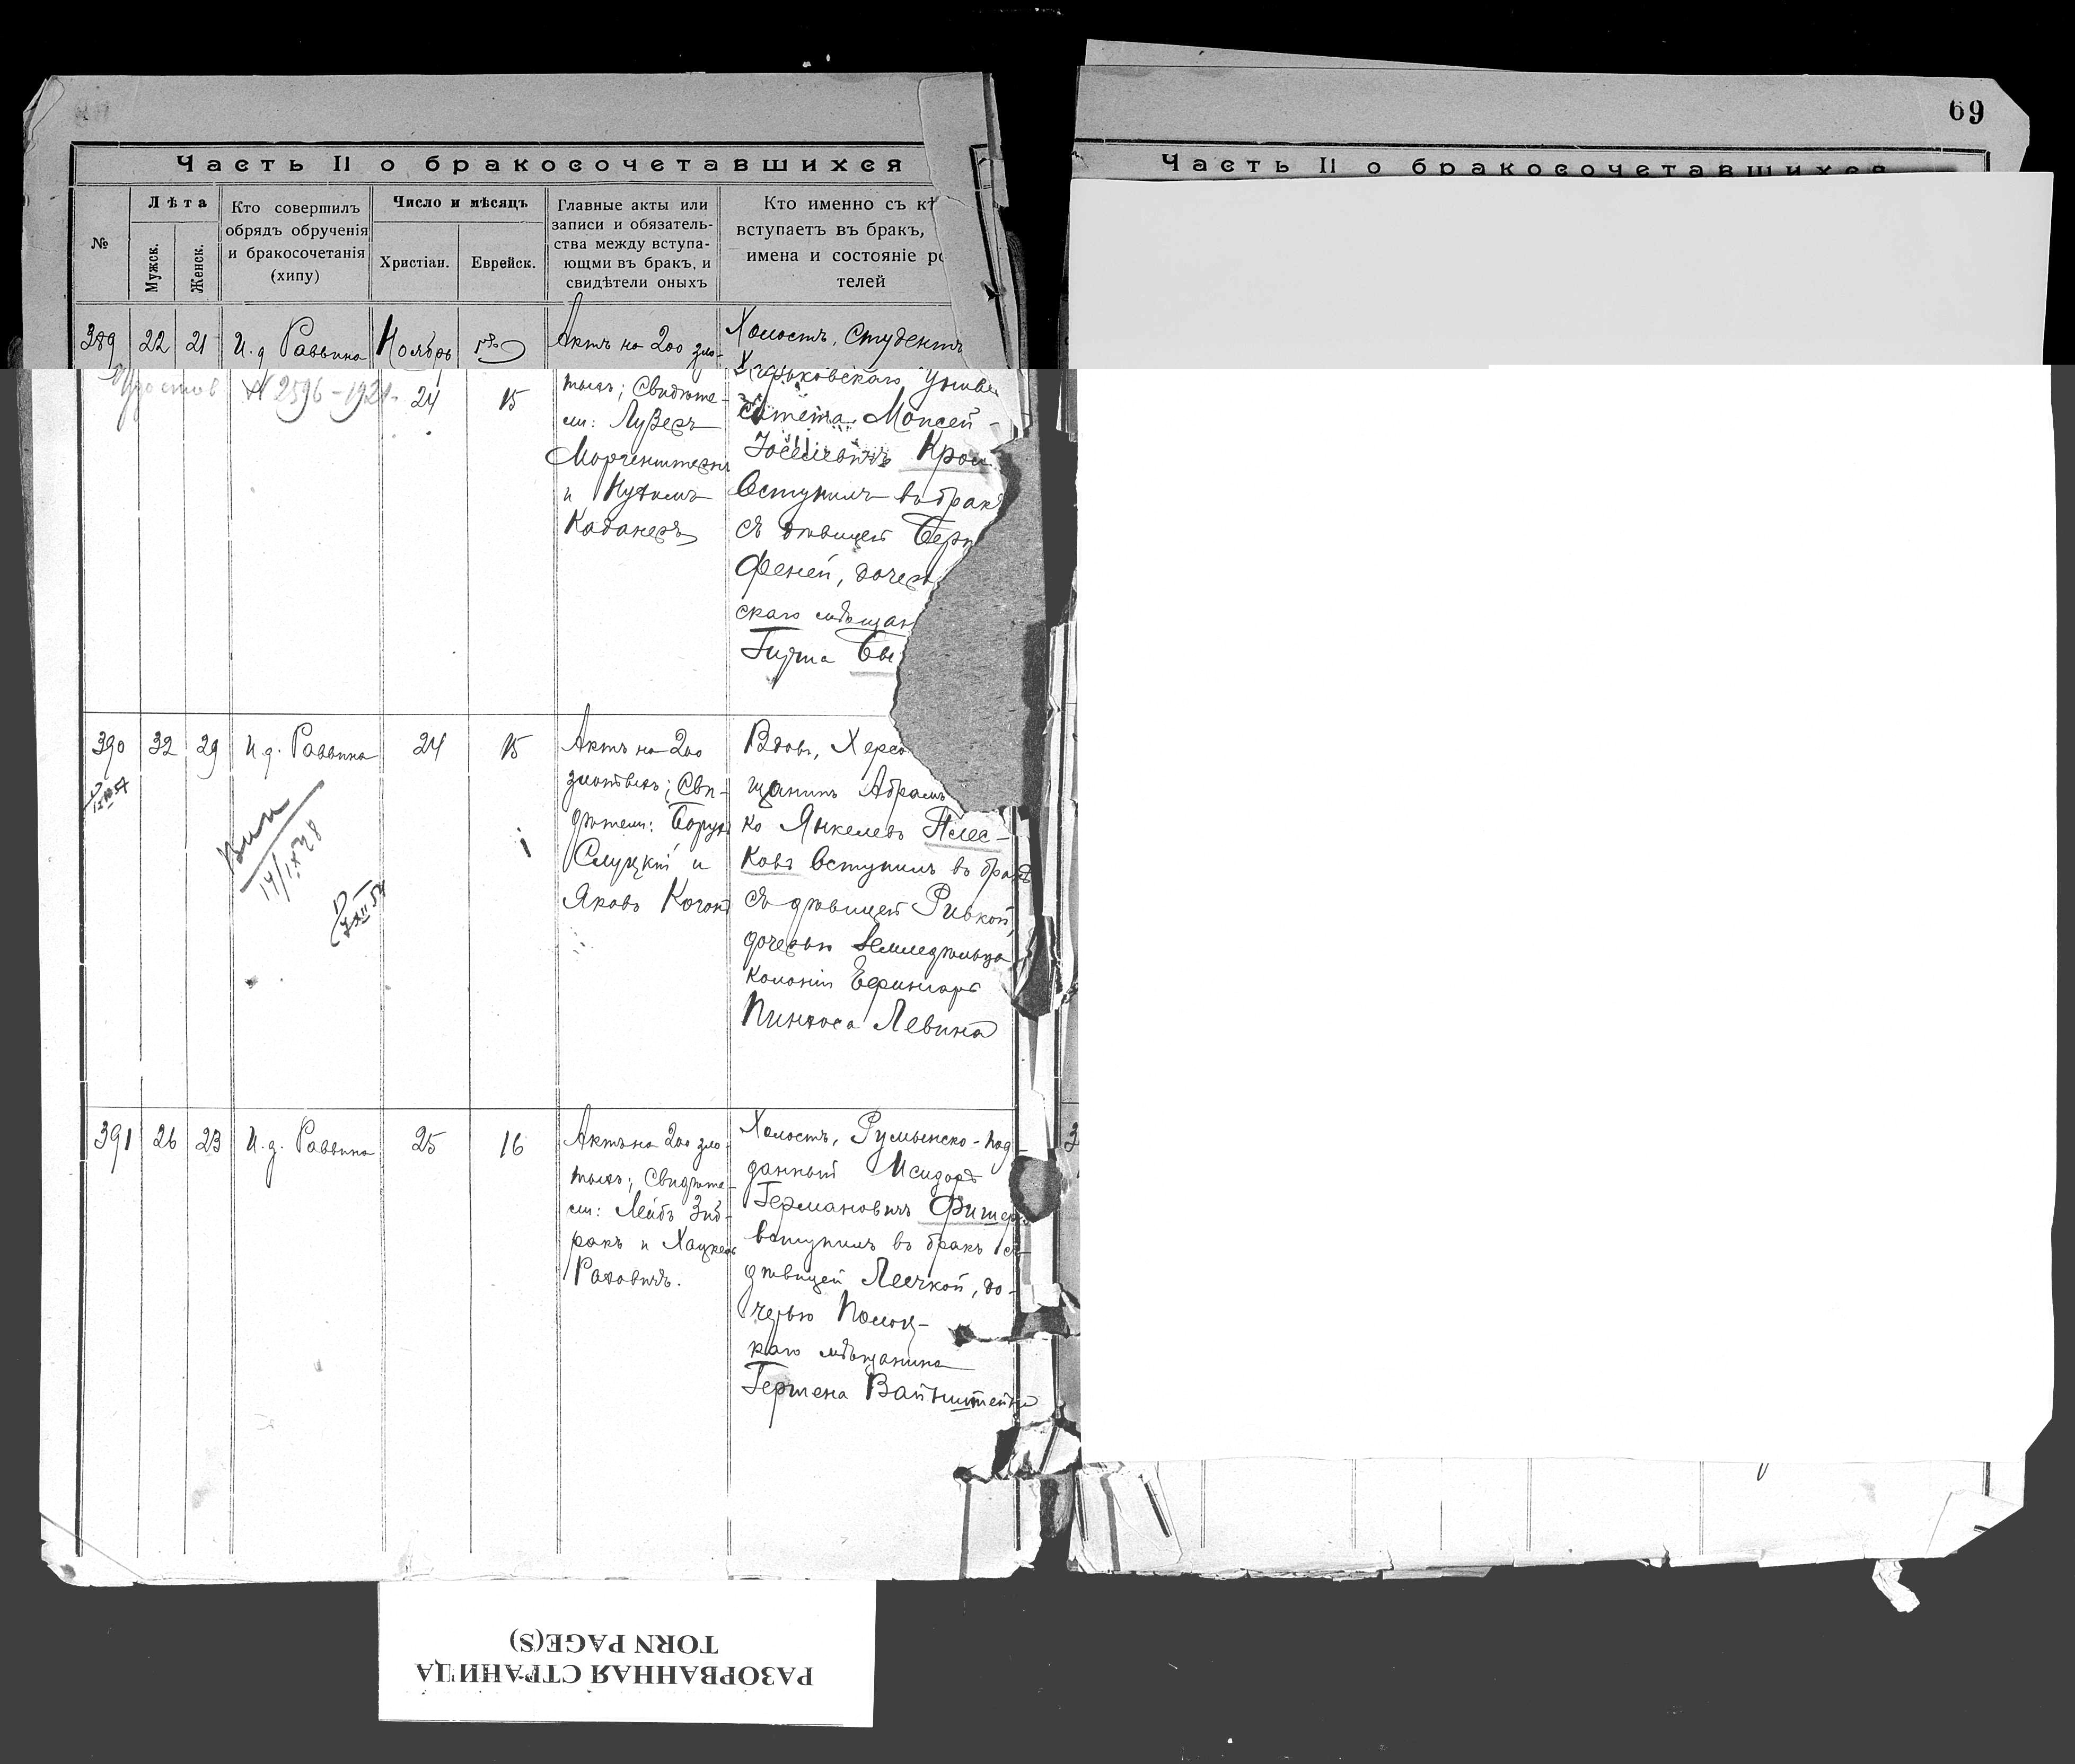 69
Часть II о бракосочетавшихся
Часть II о бракосочетавшихся
№
Лѣта
Мужск.
Женск.
Кто совершилъ
обрядъ обрученія
и бракосочетанія
(хипу)
Число и мѣсяцъ
Христіан.
Еврейск.
Главные акты или
записи и обязатель-
ства между вступа-
ющми въ бракъ, и
свидѣтели оныхъ
Кто именно съ кѣ
вступаетъ въ бракъ,
имена и состояніе ро
телей
389 22 21 И.д Раввина Ноябрь
№ 2596-1921 24 15
Актъ на 200 зло-
тыхъ; Свидѣте-
ли: Лузеръ
Моргенштернъ
и Нухимъ
Каданеръ
Холостъ, Студентъ
Харьковскаго Униве
ситета Моисей-
Крои
Вступилъ въ бракъ
съ дѣвицей Бер
Феней, дочерь
скаго мѣщан
390 32 29 И.д. Раввина 24 15
Актъ на 200
злотыхъ; Сви-
дѣтели: Борухъ
Слуцкій и
Яковъ Коганъ
Вдовъ, Херсо
щанинъ Абрамъ
ко Янкелевъ Плес-
ковъ Вступилъ въ бракъ
съ дѣвицей Ривкой,
дочерью Земледѣльца
колоніи Ефингаръ
Пинхоса Левина
391 26 23 И.д. Раввина 25 16
Актъ на 200 зло
тыхъ; Свидѣте-
ли: Лейбъ Зиб-
ракъ и Хацкель
Раховичъ.
Холостъ, Румынско-под
данный Исидоръ
Германовичъ Фишеръ
вступилъ въ бракъ съ
дѣвицей Леечкой, до-
черью Полоц-
каго мѣщанина
Гершена Вайнштейна
РАЗОРВАННАЯ СТРАНИЦА
TORN PAGE(S)